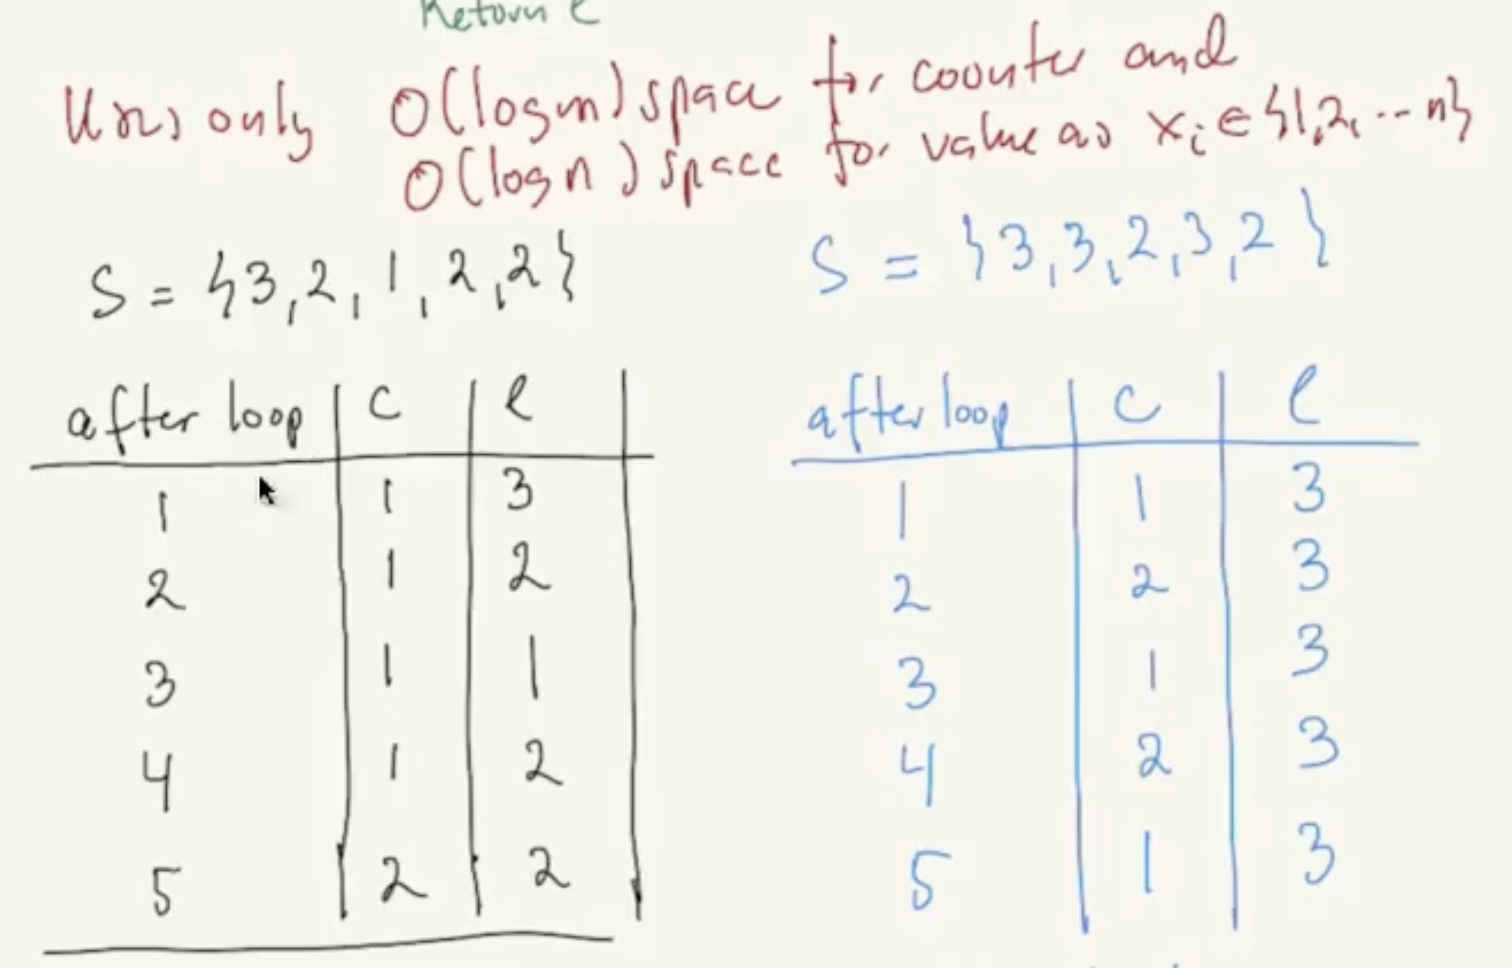 Return l
Uses only O(log m) space for counter and
O(log n) space for value as xᵢ ∈ {1,2, ... n}
S = {3,2,1,2,2}
after loop | c | l
1 | 1 | 3
2 | 1 | 2
3 | 1 | 1
4 | 1 | 2
5 | 2 | 2
S = {3,3,2,3,2}
after loop | c | l
1 | 1 | 3
2 | 2 | 3
3 | 1 | 3
4 | 2 | 3
5 | 1 | 3